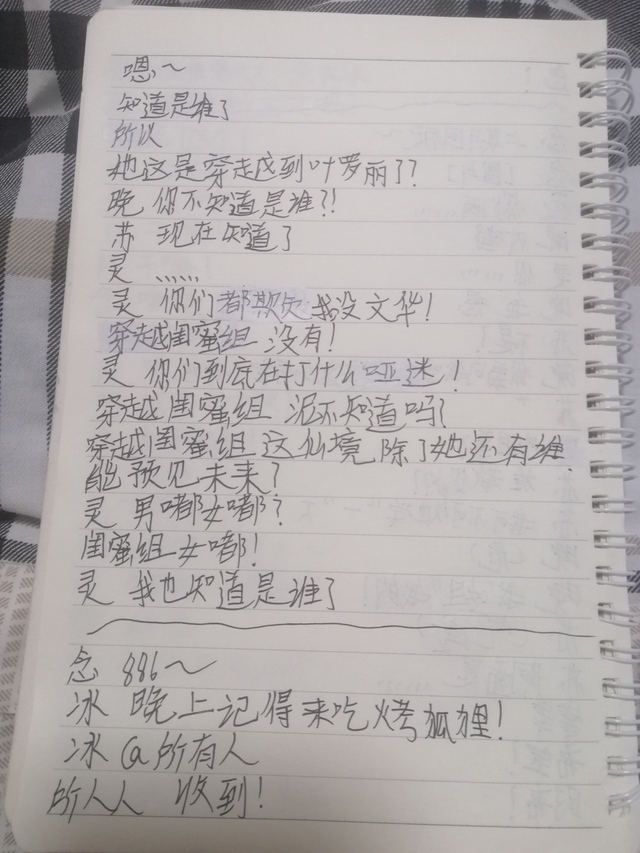 嗯～
知道是谁了
所以
她这是穿越到叶罗丽了??
晚 你不知道是谁?!
苏 现在知道了
灵 ……
灵 你们都欺负我没文华!
穿越闺蜜组 没有!
灵 你们到底在打什么哑迷!
穿越闺蜜组 泥不知道吗?
穿越闺蜜组 这仙境除了她还有谁
能预见未来?
灵 男嘟女嘟?
闺蜜组 女嘟!
灵 我也知道是谁了
念 886～
冰 晚上记得来吃烤狐狸!
冰 @所有人
所人人 收到!